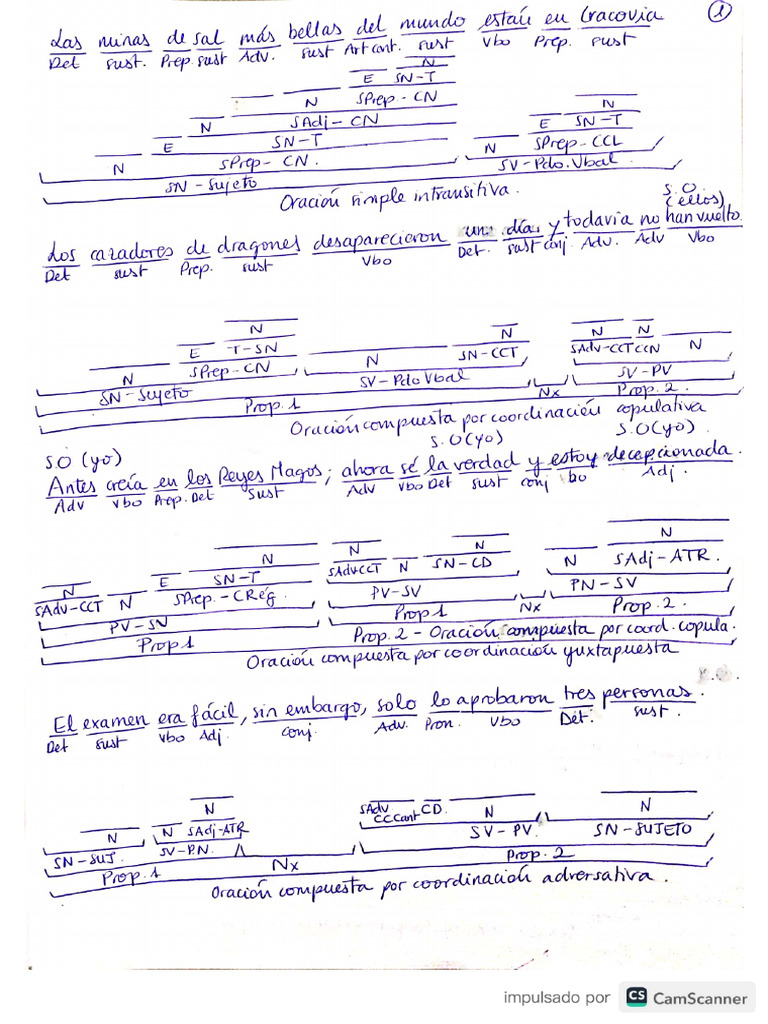 1
Las minas de sal más bellas del mundo están en Cracovia
Det sust. Prep. sust Adv. sust Art cont. sust Vbo Prep. sust
N
E SN-T N
N SPrep-CN E SN-T
N SAdj-CN N SPrep-CCL
E SN-T SV-Pdo.Vbal
N SPrep-CN.
SN-Sujeto
Oración simple intransitiva.
S.O.
(ellos)
Los cazadores de dragones desaparecieron un día y todavía no han vuelto.
Det sust Prep. sust Vbo Det. sust conj. Adv. Adv Vbo
N N N N
E T-SN SN-CCT SAdv-CCT CCN N
N SPrep-CN N SV-PV
SN-Sujeto SV-PdoVbal Nx Prop. 2.
Prop. 1
Oración compuesta por coordinación copulativa
S.O (yo) S.O(yo) S.O(yo).
Antes creía en los Reyes Magos; ahora sé la verdad y estoy decepcionada.
Adv Vbo Prep. Det Sust Adv Vbo Det sust conj bo Adj.
N N N N
N E SN-T SAdvCCT N SN-CD N SAdj-ATR.
SAdv-CCT N SPrep.-CRég. PV-SV PN-SV
PV-SN Prop1 Nx Prop. 2.
Prop1 Prop. 2 - Oración compuesta por coord. copula.
Oración compuesta por coordinación yuxtapuesta
El examen era fácil, sin embargo, solo lo aprobaron tres personas.
Det sust Vbo Adj. conj. Adv. Pron. Vbo Det. sust.
N SAdv CD. N
N N SAdj-ATR CCCant N
SN-SUJ. SV-P.N. SV-PV. SN-SUJETO
Prop.1 Nx Prop. 2
Oración compuesta por coordinación adversativa.
impulsado por CS CamScanner